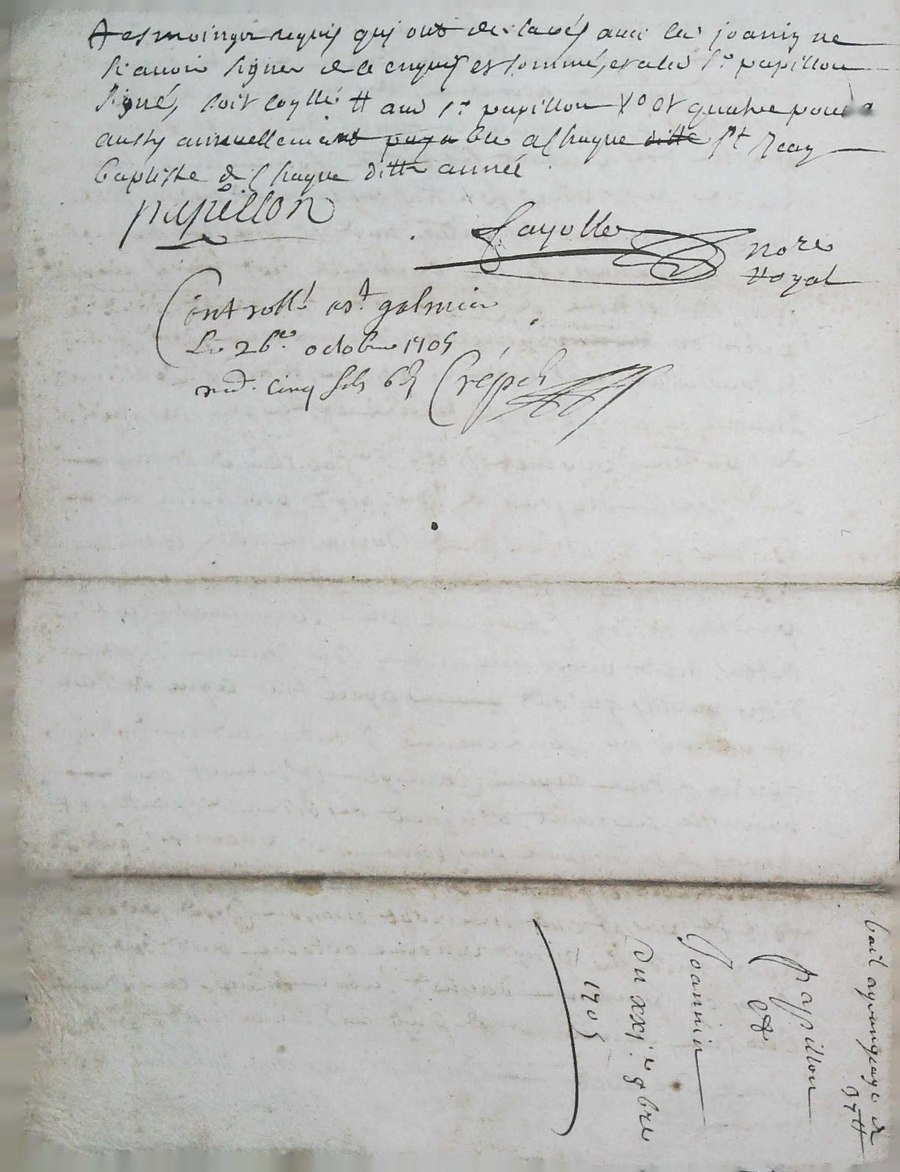 tesmoingz requis qui ont declarés avec led joanin ne
scavoir signer de ce enquis et sommé, et a led Sr papillon
signé, soit coyllé # aud Sr papillon et quatre poulda
aussy annuellement payable a chaque ditte St Jean
baptiste de chaque ditte année
papillon
fayolle nore
royal
Controllé a st galmier
Le 26e octobre 1705
red. cinq sols 6d Crépet
bail a grangeage de
37#
papillon
et
Joannin
Du xxje 8bre
1705